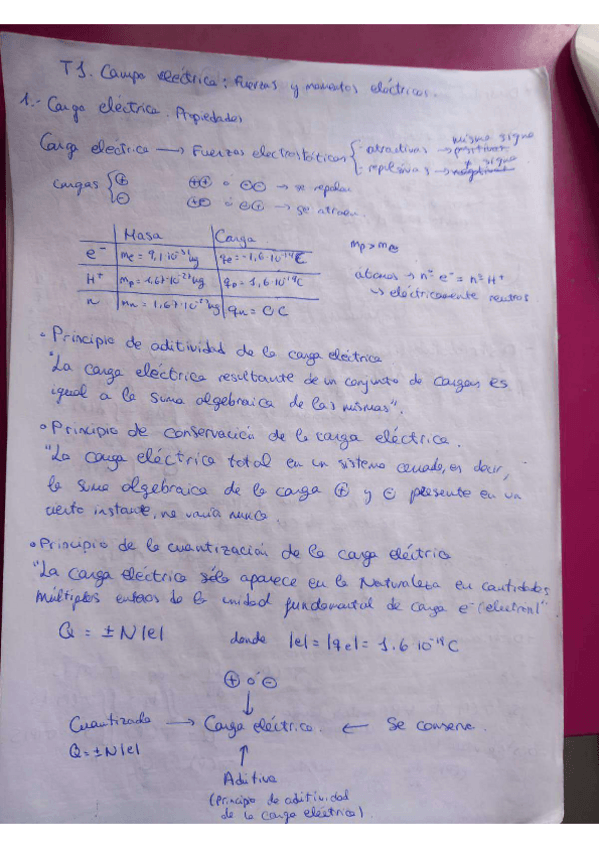 T1. Campo eléctrico: Fuerzas y momentos eléctricos.
1.- Carga eléctrica. Propiedades
Carga eléctrica → Fuerzas electrostáticas { atractivas → positivas mismo signo
repulsivas → negativas ≠ signo
Cargas { ⊕ ⊕⊕ o ⊖⊖ → se repelen
⊖ ⊕⊖ o ⊖⊕ → se atraen
Masa Carga
e⁻ me = 9,1·10⁻³¹ kg qe = -1,6·10⁻¹⁹ C mp > me
H⁺ mp = 1,67·10⁻²⁷ kg qp = 1,6·10⁻¹⁹ C átomos → nº e⁻ = nº H⁺
n mn = 1,67·10⁻²⁷ kg qn = 0 C ↳ eléctricamente neutros
• Principio de aditividad de la carga eléctrica
"La carga eléctrica resultante de un conjunto de cargas es
igual a la suma algebraica de las mismas".
• Principio de conservación de la carga eléctrica.
"La carga eléctrica total en un sistema cerrado, es decir,
la suma algebraica de la carga ⊕ y ⊖ presente en un
cierto instante, no varía nunca
• Principio de la cuantización de la carga eléctrica
"La carga eléctrica sólo aparece en la Naturaleza en cantidades
múltiplos enteros de la unidad fundamental de carga e⁻ (electrón)"
Q = ± N|e| donde |e| = |qe| = 1,6·10⁻¹⁹ C
⊕ o ⊖
↓
Cuantizada → Carga eléctrica. ← Se conserva.
Q = ± N|e| ↑
Aditiva
(Principio de aditividad
de la carga eléctrica).